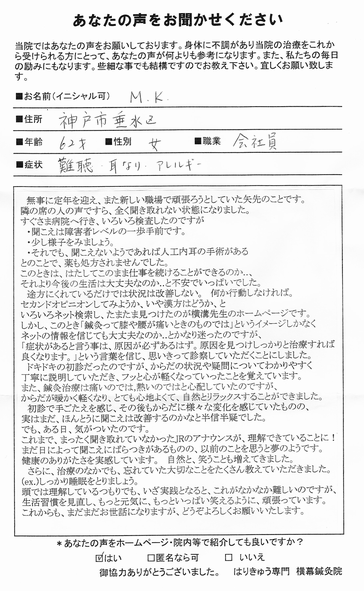 あなたの声をお聞かせください
当院ではあなたの声をお願いしております。身体に不調があり当院の治療をこれか
ら受けられる方にとって、あなたの声が何よりも参考になります。また、私たちの毎日
の励みにもなります。些細な事でも結構ですのでお教え下さい。宜しくお願い致しま
す。
■お名前(イニシャル可) M.K.
■住所 神戸市垂水区
■年齢 62才 ■性別 女 ■職業 会社員
■症状 難聴・耳なり・アレルギー
無事に定年を迎え、また新しい職場で頑張ろうとしていた矢先のことです。
隣の席の人の声ですら、全く聞き取れない状態になりました。
すぐさま病院へ行き、いろいろ検査したのですが
・聞こえは障害者レベルの一歩手前です。
・少し様子をみましょう。
・それでも、聞こえないようであれば人工内耳の手術がある
とのことで、薬も処方されませんでした。
このときは、はたしてこのまま仕事を続けることができるのか‥、
それより今後の生活は大丈夫なのか‥と不安でいっぱいでした。
途方にくれているだけでは状況は改善しない。 何か行動しなければ。
セカンドオピニオンしてみようか、いや漢方はどうか、と
いろいろネット検索し、たまたま見つけたのが横溝先生のホームページです。
しかし、このとき「鍼灸って膝や腰が痛いときのものでは」というイメージしかなく
ネットの情報を信じても大丈夫なのか‥とかなり迷ったのですが、
「症状があると言う事は、原因が必ずあるはず。原因を見つけしっかりと治療すれば
良くなります。」という言葉を信じ、思いきって診察していただくことにしました。
ドキドキの初診だったのですが、からだの状況や疑問についてわかりやすく
丁寧に説明していただき、フッと心が軽くなっていったことを覚えています。
また、鍼灸治療は痛いのでは、熱いのではと心配していたのですが、
からだが暖かく軽くなり、とても心地よくて、自然とリラックスすることができました。
初診で手ごたえを感じ、その後もからだに様々な変化を感じていたものの、
実はまだ、ほんとうに聞こえは改善するのかなと半信半疑でした。
でも、ある日、気がついたのです。
これまで、まったく聞き取れていなかったJRのアナウンスが、理解できていることに!
まだ日によって聞こえにばらつきがあるものの、以前のことを思うと夢のようです。
健康のありがたさを実感しています。 自然と、笑うことも増えてきました。
さらに、治療のなかでも、忘れていた大切なことをたくさん教えていただきました。
(ex.)しっかり睡眠をとりましょう。
頭では理解しているつもりでも、いざ実践となると、これがなかなか難しいのですが、
生活習慣を見直し、もっと元気に、もっといっぱい笑えるように、頑張っています。
これからも、まだまだお世話になりますが、どうぞよろしくお願いいたします。
*あなたの声をホームページ・院内等で紹介しても良いですか?
☑はい □匿名なら可 □いいえ
御協力ありがとうございました。 はりきゅう専門 横幕鍼灸院